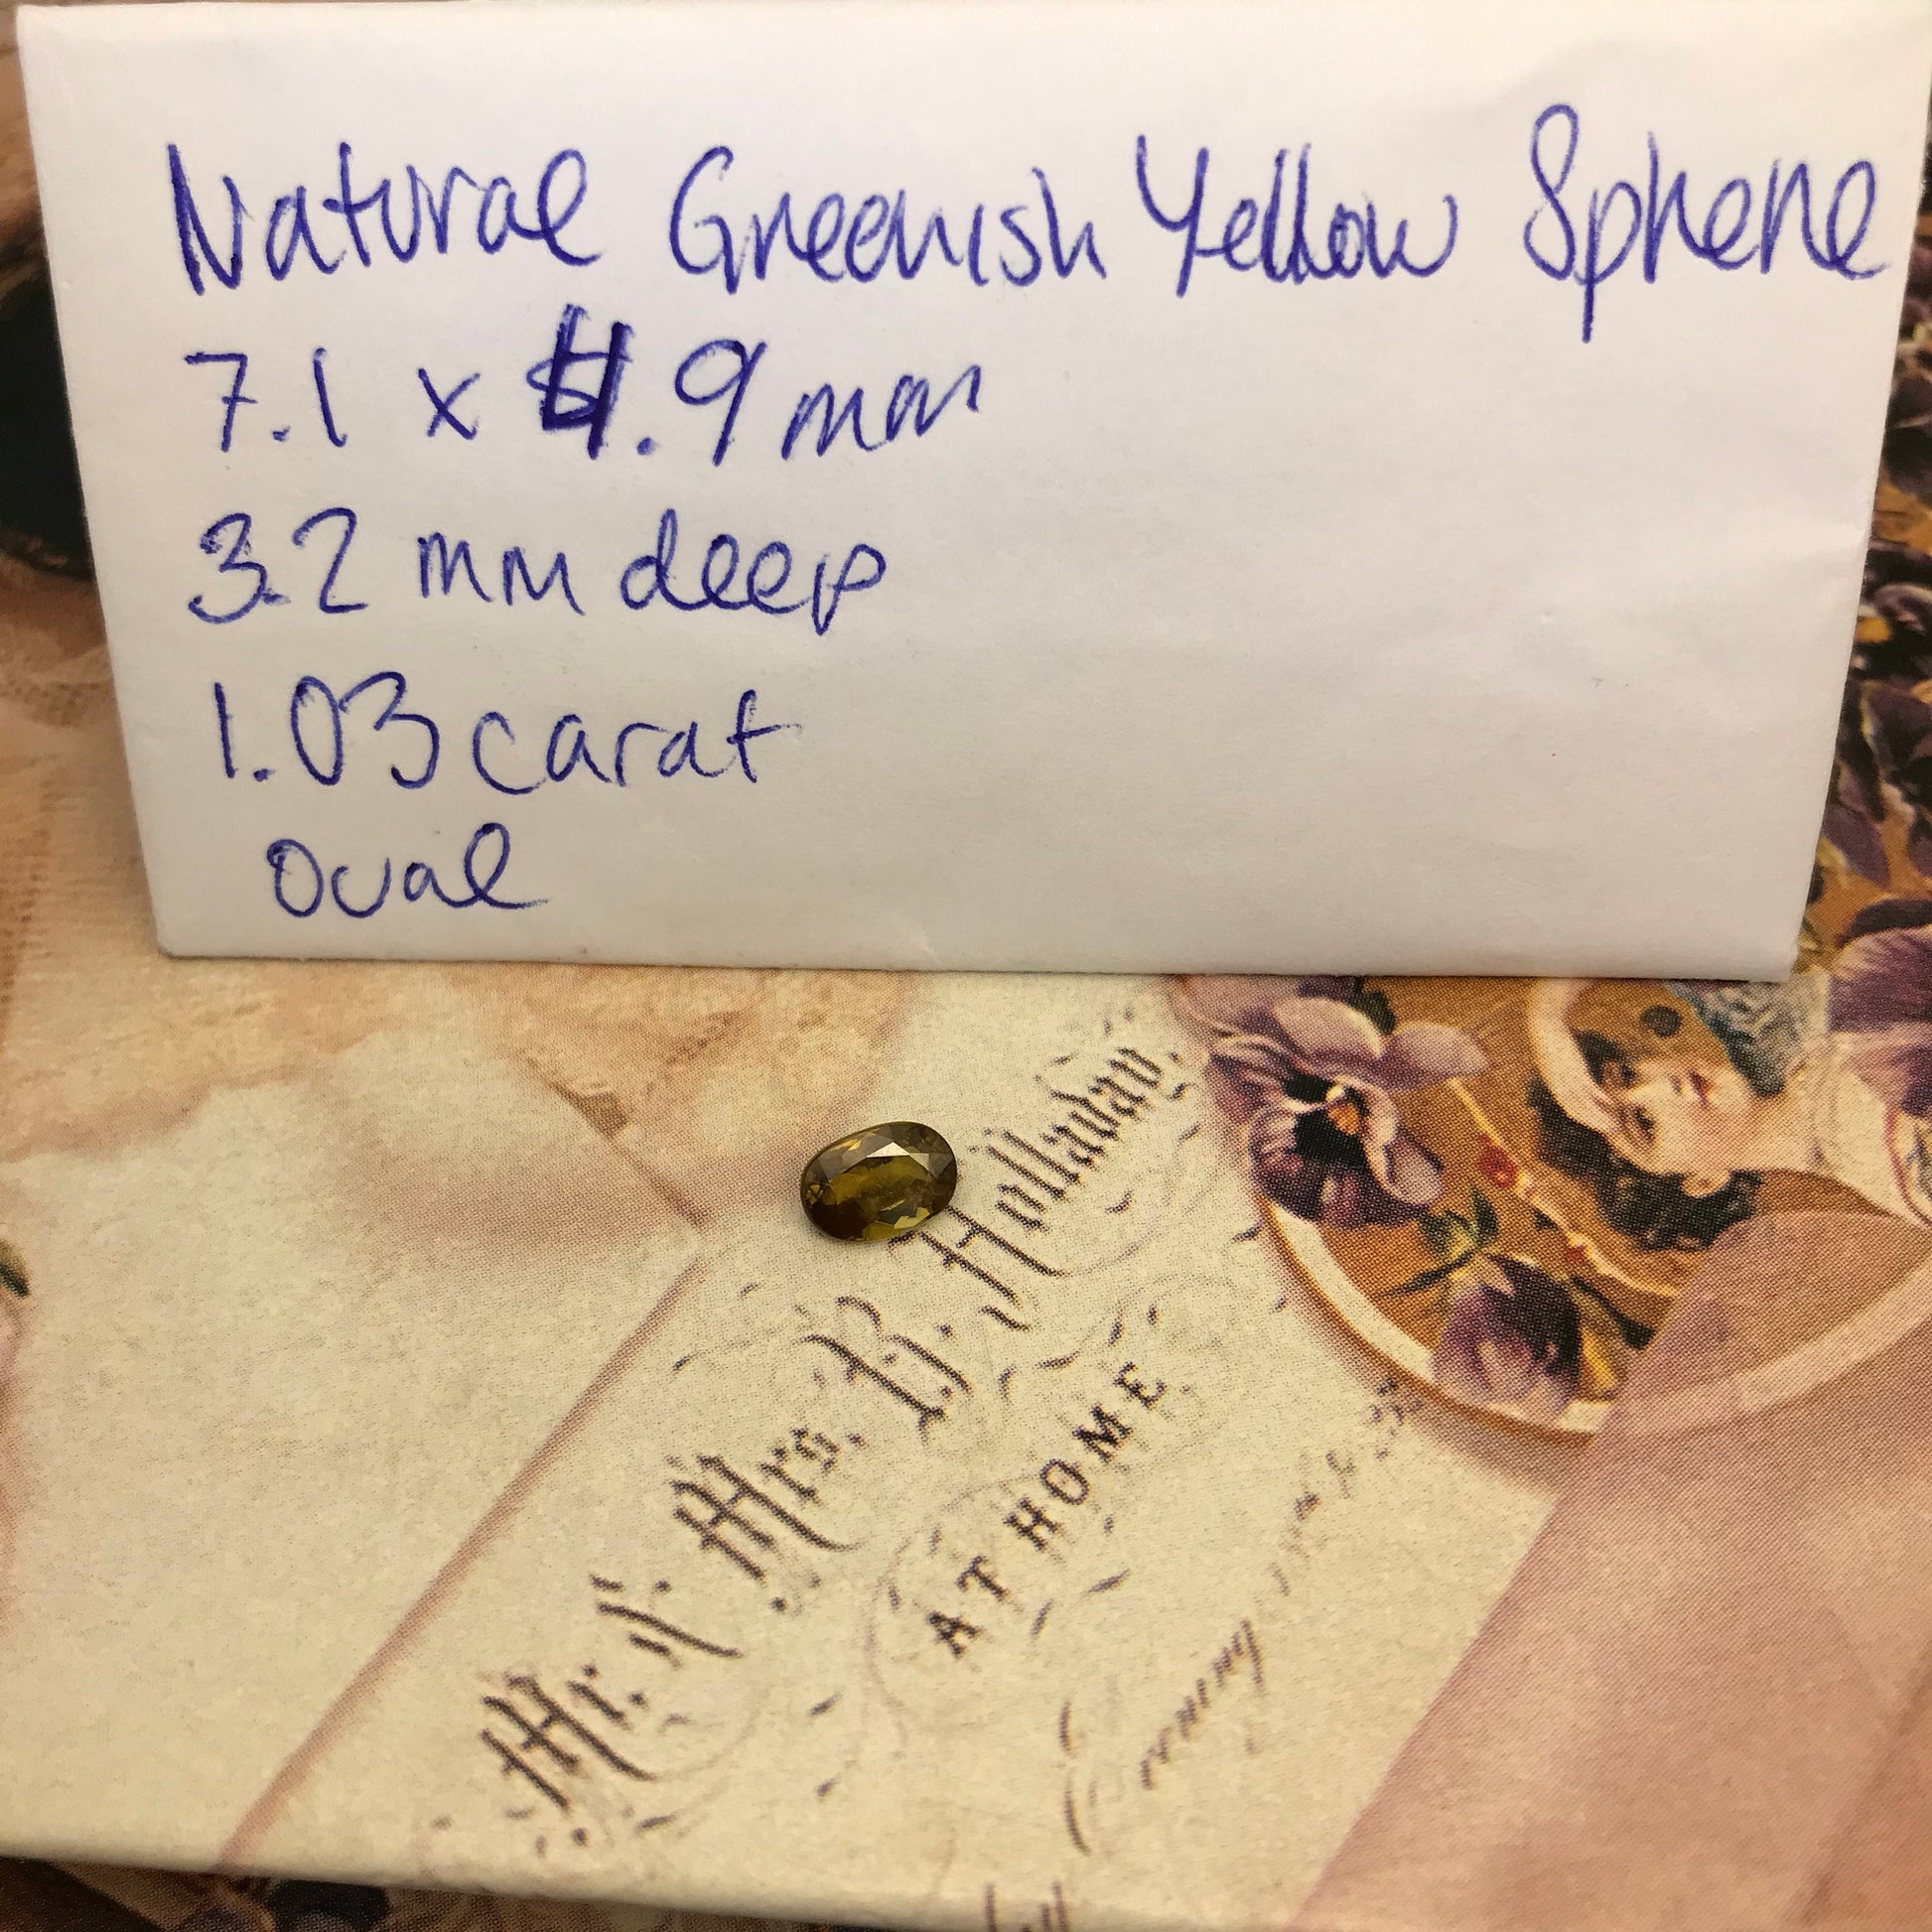 Natural Greenish Yellow Sphene
7.1 x 4.9 mm
3.2 mm deep
1.03 carat
Oval
Mr. & Mrs. B. Holladay,
AT HOME